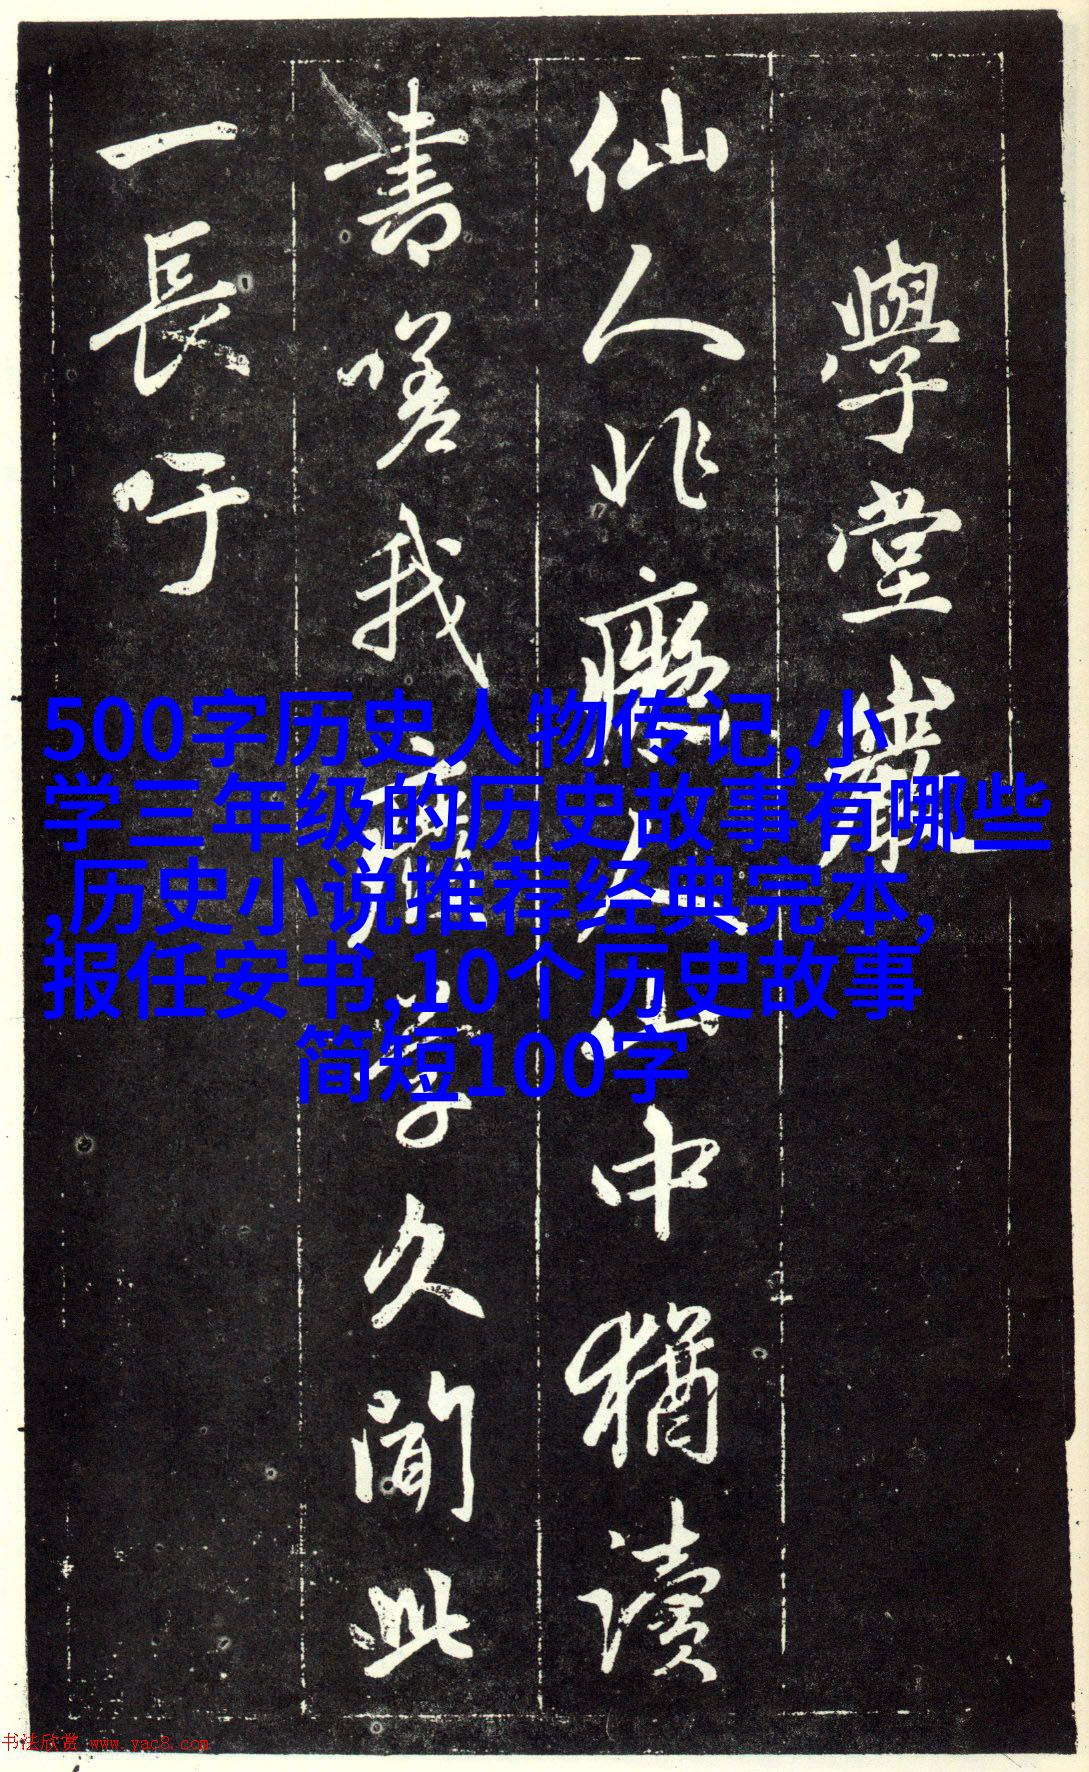 學堂巖
仙人非癡人山中猶讀
書嗟我廢學久聞此
一長吁
500字历史人物传记,小
学三年级的历史故事有哪些
,历史小说推荐经典完本,
报任安书,10个历史故事
简短100字
书法欣赏 www.yac8.com